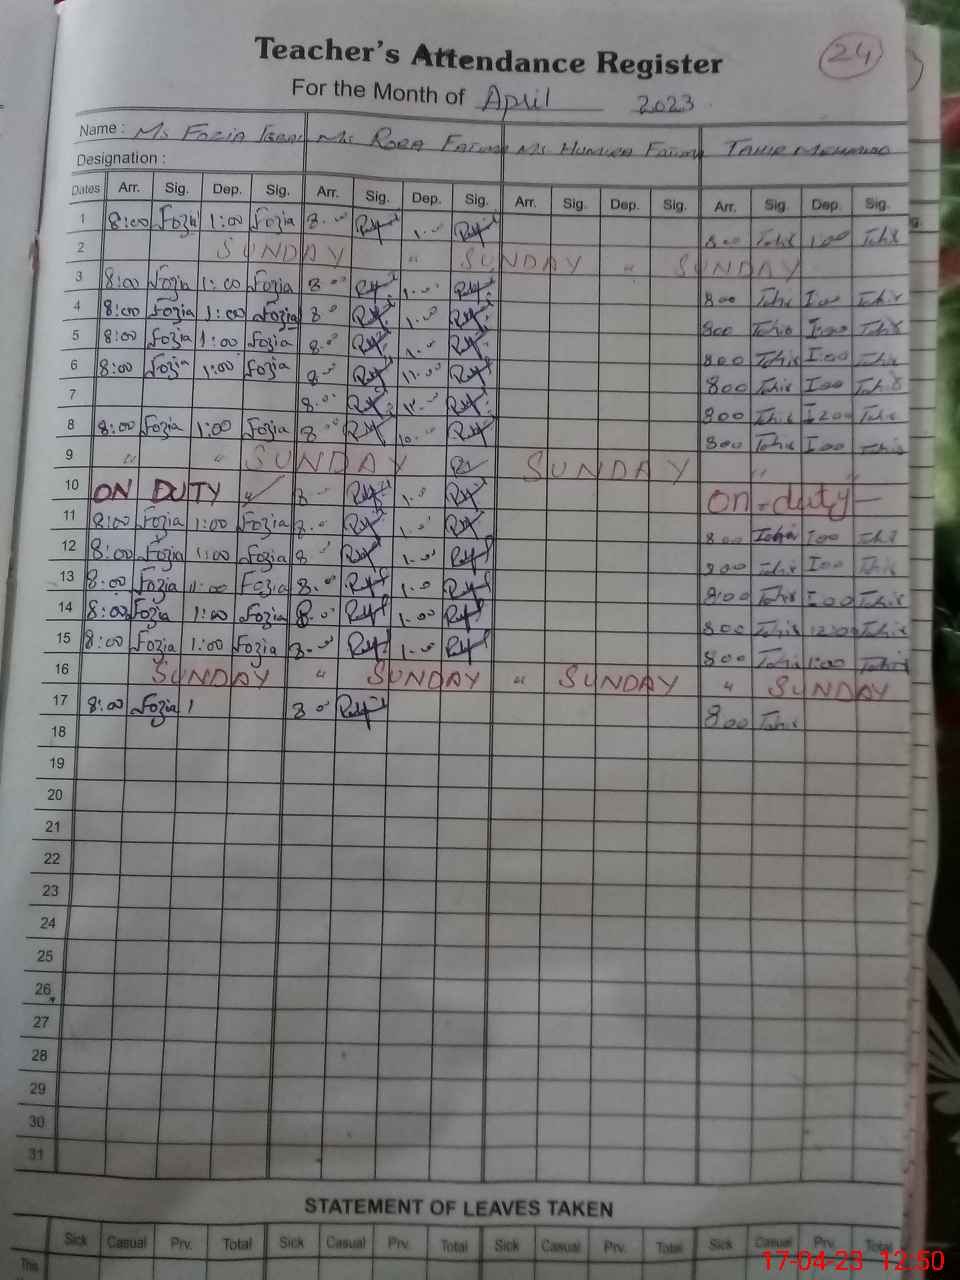 24
Teacher's Attendance Register
For the Month of April 2023
Name : Ms Fozia Ms Fatima Ms Humera Fatima Tahir Mehmood
Designation :
Dates Arr. Sig. Dep. Sig. Arr. Sig. Dep. Sig. Arr. Sig. Dep. Sig. Arr. Sig. Dep. Sig.
1 8:00 Fozia 1:00 Fozia 8.00 1.00 800 Tahir 1:00 Tahir
2 SUNDAY " SUNDAY " SUNDAY
3 8:00 Fozia 1:00 Fozia 8.00 1.00 800 Tahir 1:00 Tahir
4 8:00 Fozia 1:00 Fozia 8.00 1.00 800 Tahir 1:00 Tahir
5 8:00 Fozia 1:00 Fozia 8.00 1.00 800 Tahir 1:00 Tahir
6 8:00 Fozia 1:00 Fozia 8.00 800 Tahir 1:00 Tahir
7 8.00 12.00 800 Tahir 1200 Tahir
8 8:00 Fozia 1:00 Fozia 8.00 800 Tahir 1:00 Tahir
9 " " SUNDAY SUNDAY " "
10 ON DUTY 8.00 1.00 On-duty
11 8:00 Fozia 1:00 Fozia 8.00 1.00 800 Tahir 1:00 Tahir
12 8:00 Fozia 1:00 Fozia 8.00 1.00 800 Tahir 1:00 Tahir
13 8:00 Fozia 1:00 Fozia 8.00 1.00 8:00 Tahir 1:00 Tahir
14 8:00 Fozia 1:00 Fozia 8.00 1.00 800 Tahir 12:00 Tahir
15 8:00 Fozia 1:00 Fozia 8.00 1.00 800 Tahir 1:00 Tahir
16 SUNDAY " SUNDAY " SUNDAY " SUNDAY
17 8:00 Fozia 1 8.00 800 Tahir
18
19
20
21
22
23
24
25
26
27
28
29
30
31
STATEMENT OF LEAVES TAKEN
Sick Casual Prv. Total Sick Casual Prv. Total Sick Casual Prv. Total Sick Casual Prv. Total
This
17-04-23 12:50